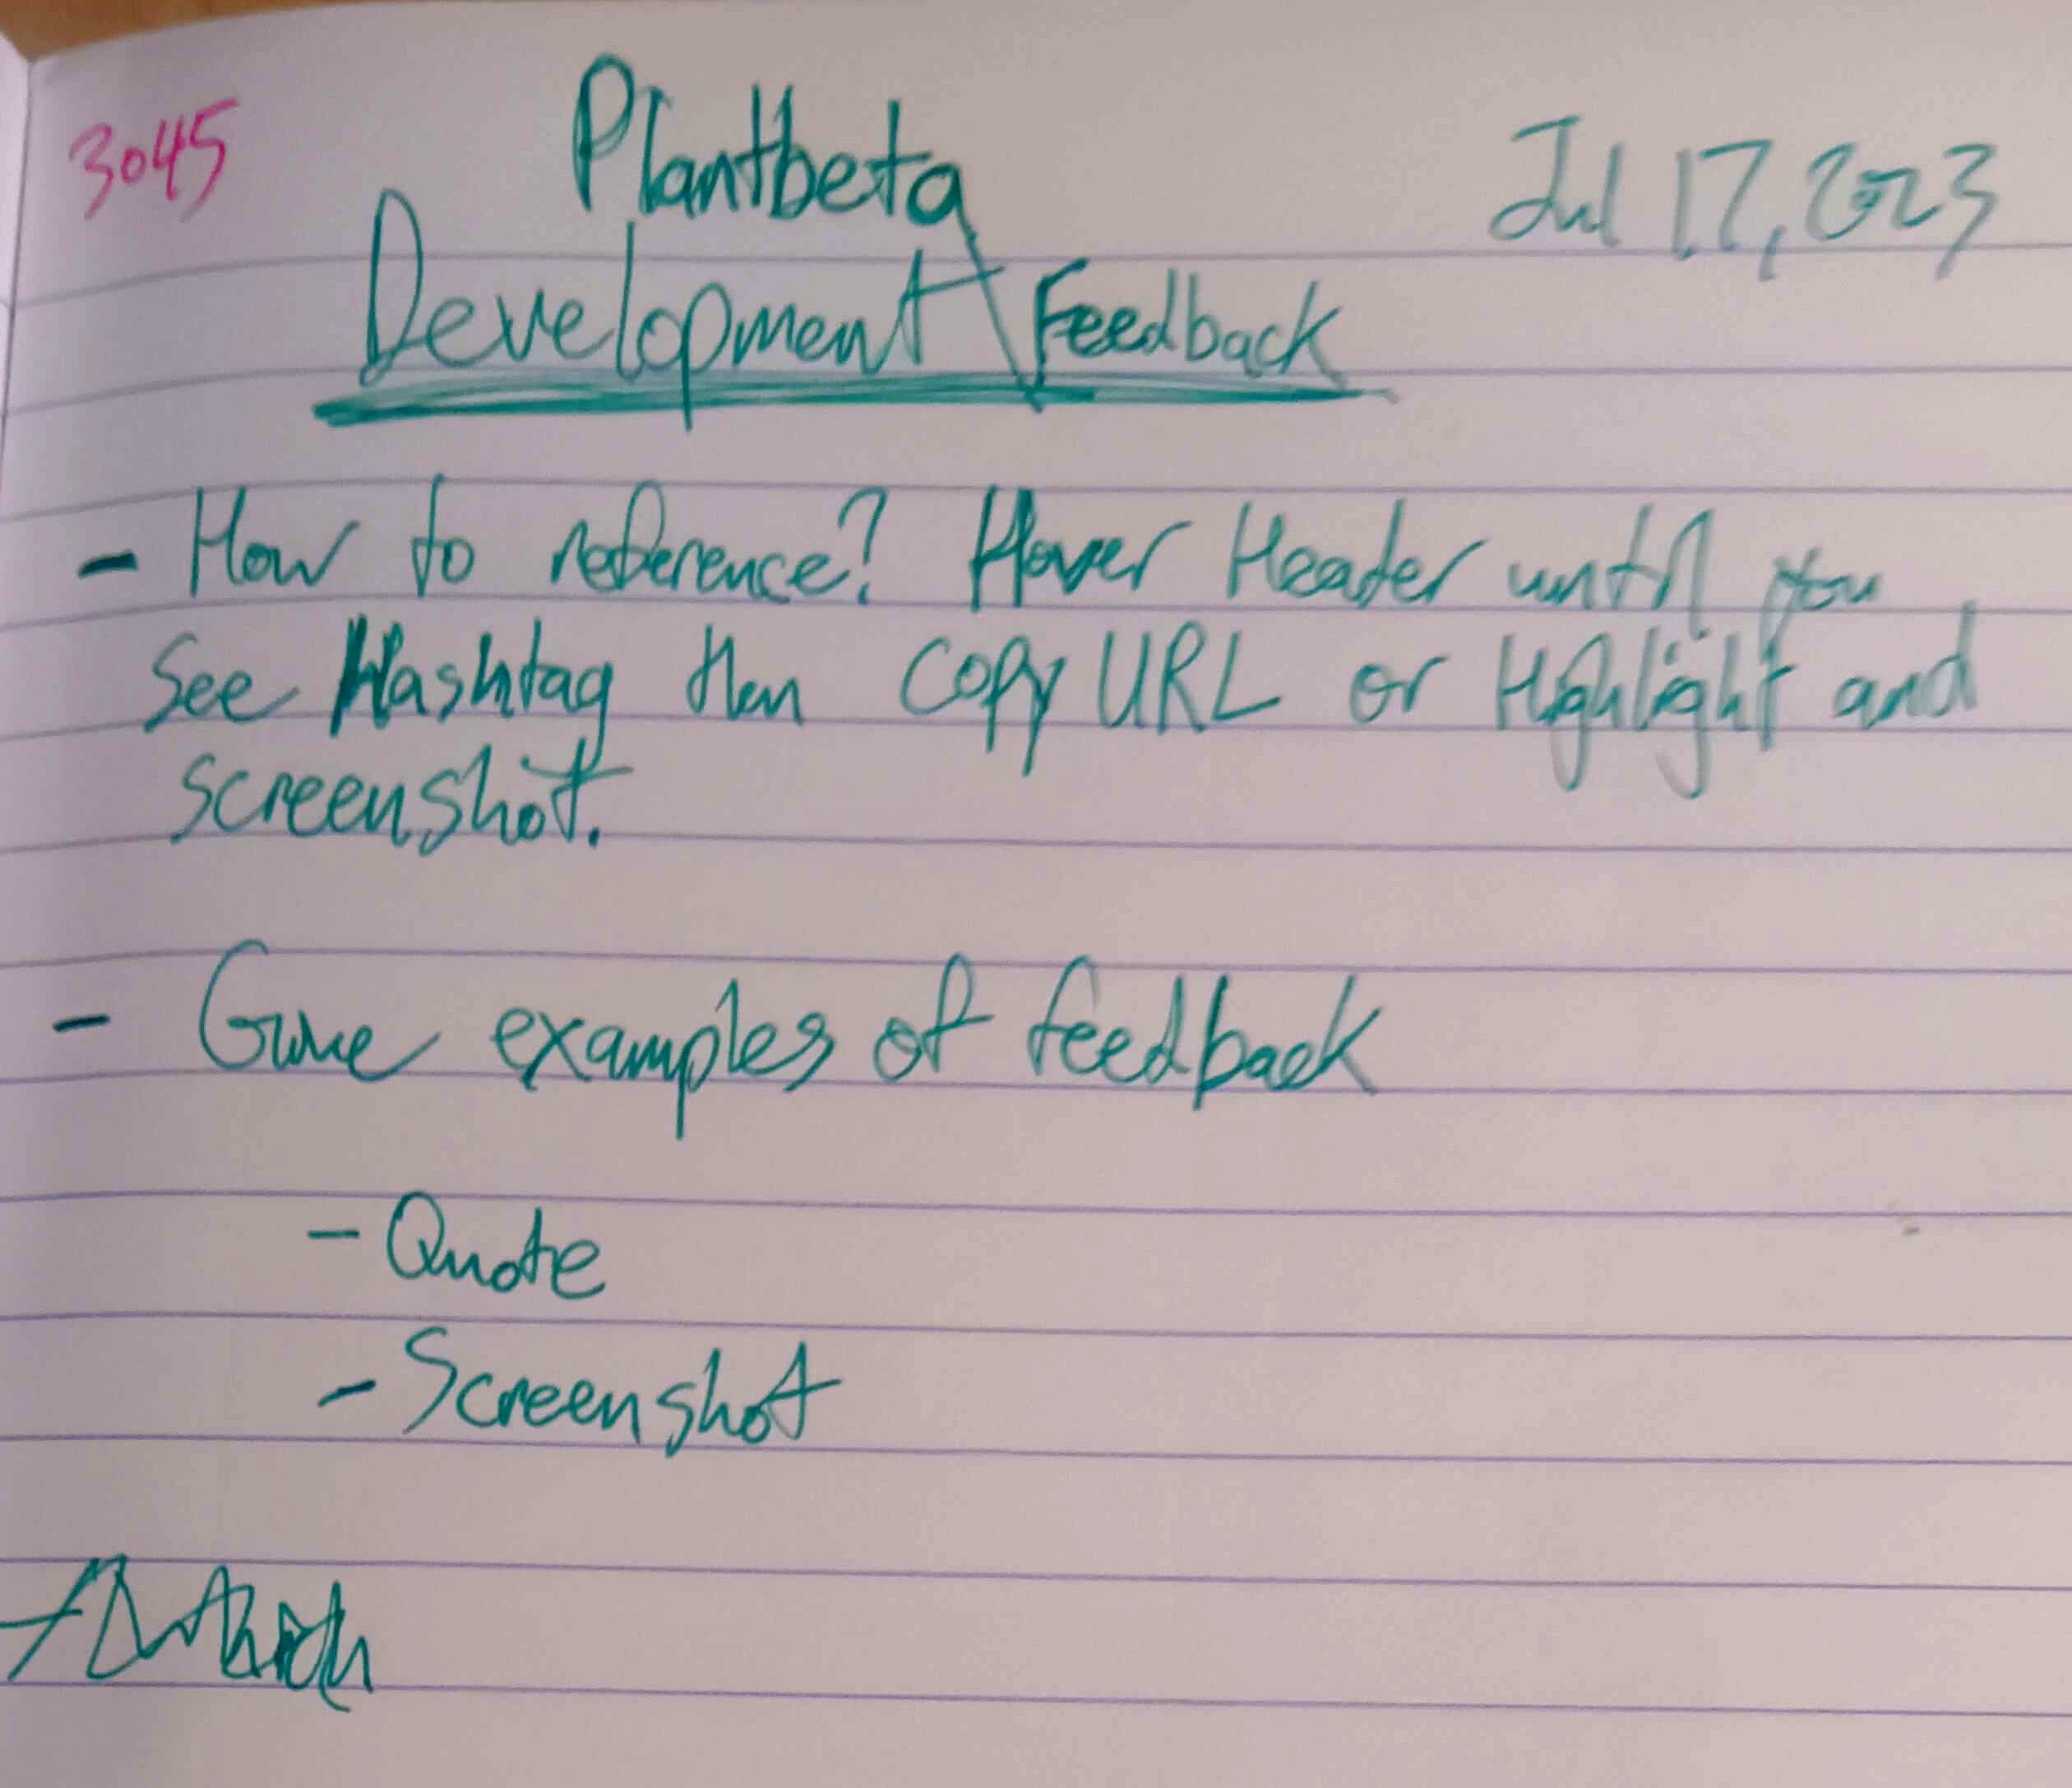 3045
Plantbeta
Jul 17, 2023
Development Feedback
- How to reference? Hover Header until you
See Hashtag then Copy URL or Highlight and
Screenshot.
- Give examples of feedback
- Quote
- Screenshot